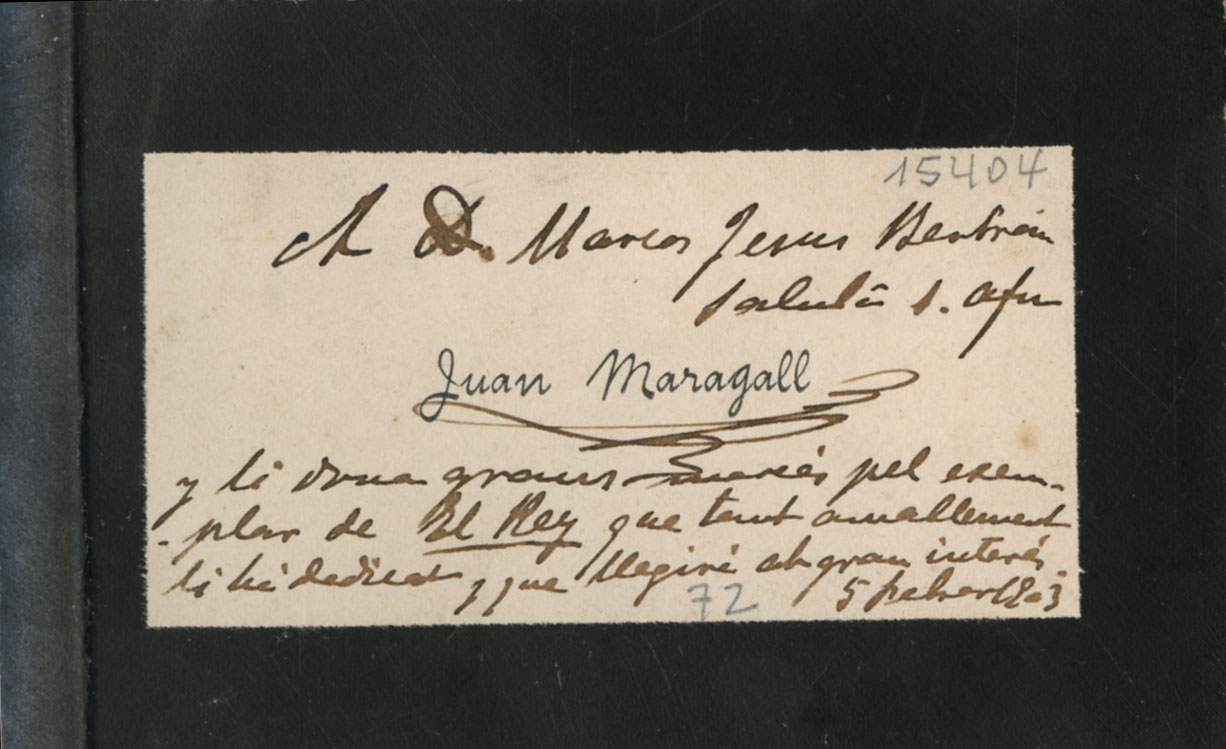 15404
A D. Marcos Jesus Bertrán
saluda s. afm
Juan Maragall
y li dona grans mercés pel exem-
-plar de El Rey que tant amablement
li há dedicat y que llegiré ab gran interés.
72 5 febrer 1903